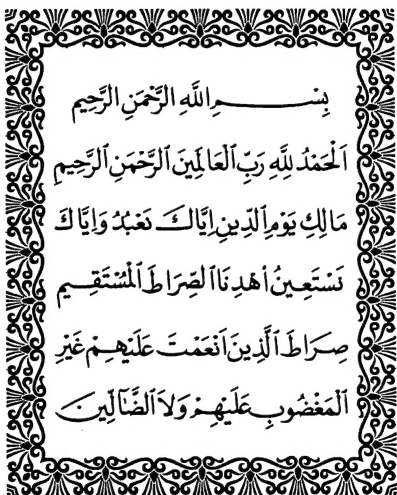 بِسْـــــمِ اللَّهِ الرَّحْمَنِ الرَّحِيمِ
اَلْحَمْدُ لِلَّهِ رَبِّ ٱلْعَالَمِينَ ٱلرَّحْمَنِ ٱلرَّحِيمِ
مَالِكِ يَوْمِ ٱلدِّينِ اِيَّاكَ نَعْبُدُ وَاِيَّاكَ
نَسْتَعِينُ اُهْدِنَا ٱلصِّرَاطَ ٱلْمُسْتَقِيمِ
صِرَاطَ ٱلَّذِينَ اَنْعَمْتَ عَلَيْهِمْ غَيْرِ
ٱلْمَغْضُوبِ عَلَيْهِمْ وَلاَ ٱلضَّالِّينَ